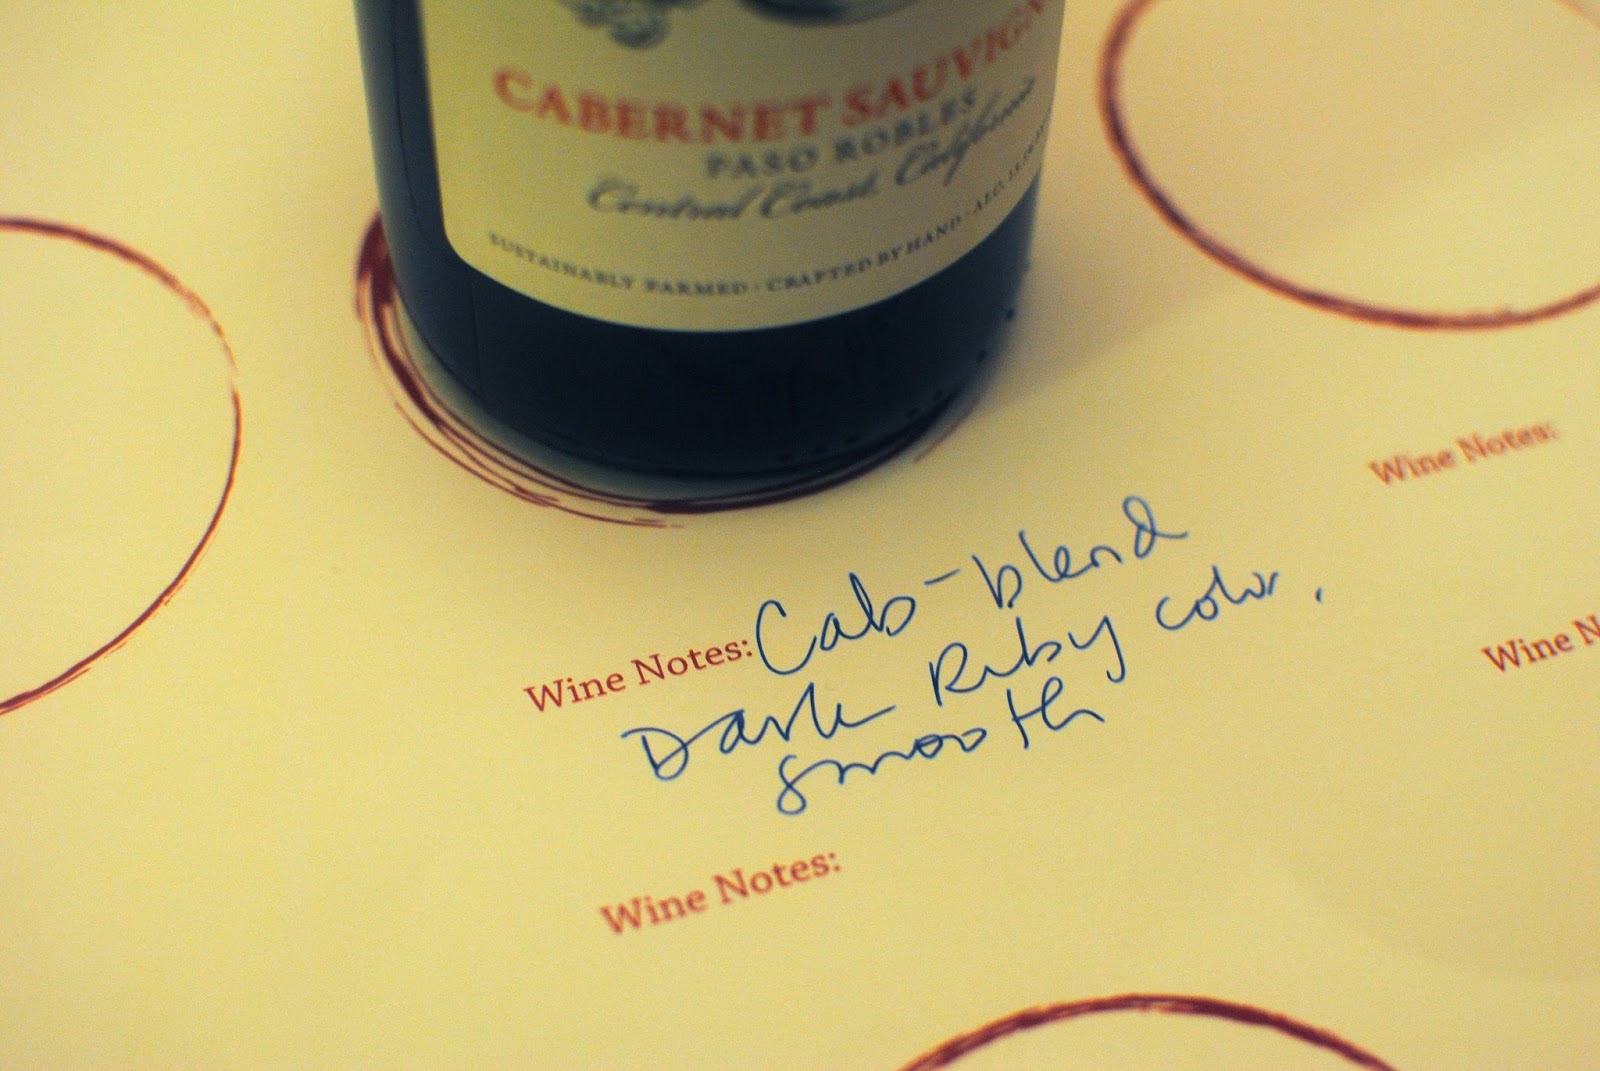 CABERNET SAUVIGN
PASO ROBLES
Central Coast, California
SUSTAINABLY FARMED · CRAFTED BY HAND · ALC.
Wine Notes:
Wine Notes: Cab-blend
Dark Ruby color,
smooth
Wine N
Wine Notes: